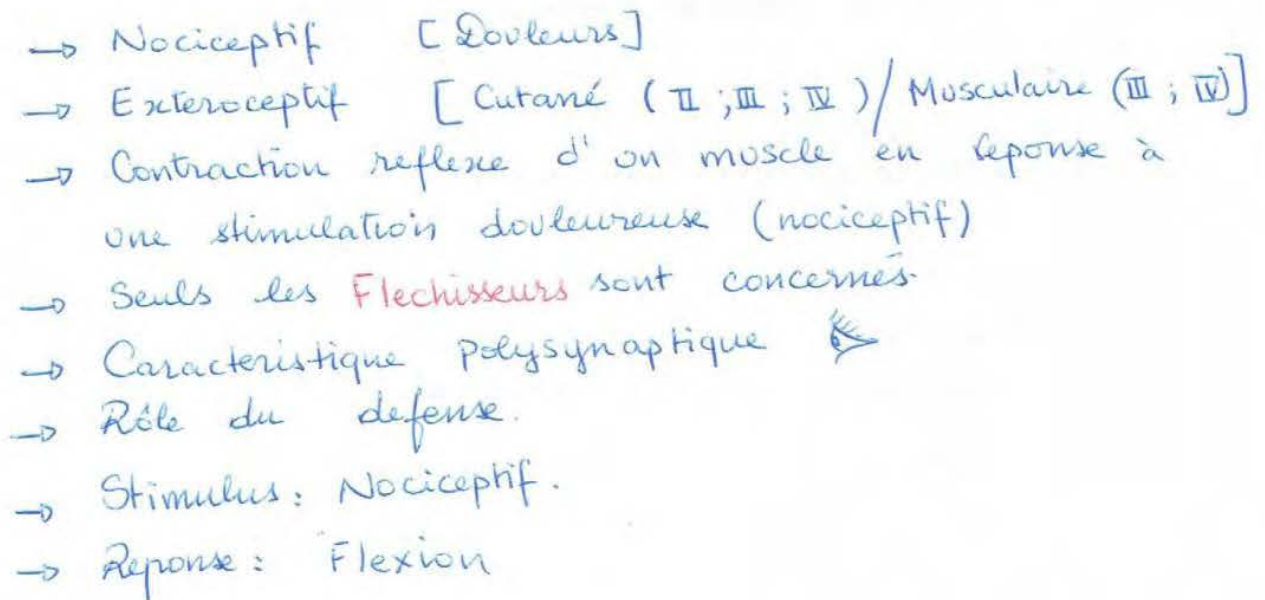 → Nociceptif [Douleurs]
→ Exteroceptif [Cutané (II ; III ; IV) / Musculaire (III ; IV)]
→ Contraction reflexe d'un muscle en reponse à
une stimulation douleureuse (nociceptif)
→ Seuls les Flechisseurs sont concernés.
→ Caracteristique polysynaptique
→ Rôle du defense.
→ Stimulus : Nociceptif.
→ Reponse : Flexion